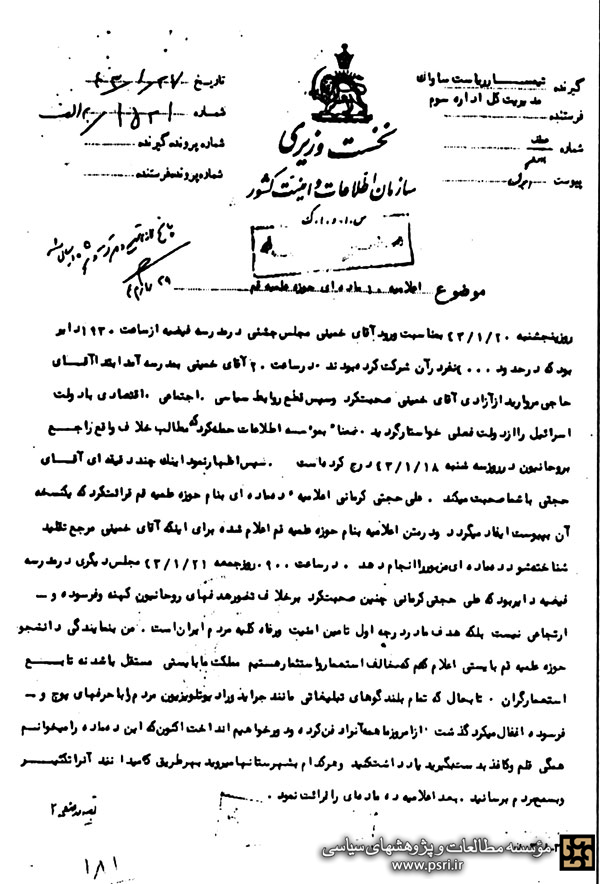 گیرنده تیمسار ریاست ساواک
مدیریت کل اداره سوم
فرستنده
شماره
پیوست
نخست وزیری
سازمان اطلاعات و امنیت کشور
س.ا.و.ا.ک
تاریخ ۴۳/۱/۲۷
شماره
شماره پرونده گیرنده
شماره پرونده فرستنده
موضوع اعلامیه ۱۰ ماده ای حوزه علمیه قم
روز پنجشنبه ۴۳/۱/۲۰ بمناسبت ورود آقای خمینی مجلس جشنی در مدرسه فیضیه از ساعت ۱۹۳۰ دایر
بود که در حدود نفر در آن شرکت کرده بودند . در ساعت ۲۰ آقای خمینی بمدرسه آمد ابتدا آقای
حاجی مروارید از آزادی آقای خمینی صحبت کرد و سپس قطع روابط سیاسی . اجتماعی . اقتصادی با دولت
اسرائیل را از دولت فعلی خواستار گردید . ضمنا بموسسه اطلاعات حمله کرد که مطالب خلاف واقع راجع
بروحانیون در روز سه شنبه ۴۳/۱/۱۸ درج کرده است . سپس اظهار نمود اینک چند دقیقه ای آقای
حجتی با شما صحبت میکند . علی حجتی کرمانی اعلامیه ده ماده ای بنام حوزه علمیه قم قرائت کرد که یکنسخه
آن بپیوست ایفاد میگردد و در متن اعلامیه بنام حوزه علمیه قم اعلام شده برای اینکه آقای خمینی مرجع تقلید
شناخته شود ده ماده ای مزبور را انجام دهد . در ساعت ۹۰۰ روز جمعه ۴۳/۱/۲۱ مجلس دیگری در مدرسه
فیضیه دایر بود که علی حجتی کرمانی چنین صحبت کرد بر خلاف تصور هدفهای روحانیون کهنه و فرسوده و ـ
ارتجاعی نیست بلکه هدف ما در درجه اول تامین امنیت و رفاه کلیه مردم ایران است . من بنمایندگی دانشجو
حوزه علمیه قم بایستی اعلام کنم که مخالف استعمار و استثمار هستیم مملکت ما بایستی مستقل باشد نه تابع
استعمارگران . تا بحال که تمام بلندگوهای تبلیغاتی مانند جراید و رادیو تلویزیون مردم را با حرفهای پوچ و ـ
فرسوده اغفال میکرد گذشت . از امروز ما همه آنرا دفن کرده و دور خواهیم انداخت اکنون که این ده ماده را میخوانم
همگی قلم و کاغذ بدست بگیرید یادداشت کنید و هر کدام بشهرستانها میروید بهر طریق که میدانند آنرا تکثیر
و بسمع مردم برسانید . بعد اعلامیه ده ماده ای را قرائت نمود .
۱۸۱
مؤسسه مطالعات و پژوهشهای سیاسی
www.psri.ir